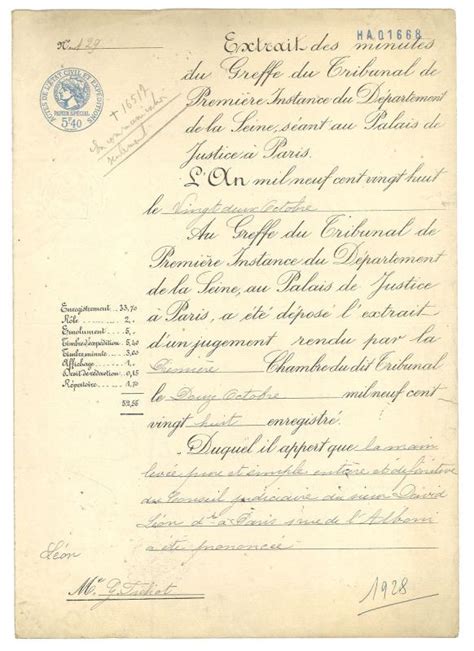 N° 129
HA 01668
Extrait des minutes
du Greffe du Tribunal de
Première Instance du Département
de la Seine, séant au Palais de
Justice, à Paris.
ACTES DE L'ÉTAT CIVIL ET EXPÉDITIONS
PAPIER SPÉCIAL
5F40
+ 1651/9
L'An mil neuf cent vingt huit
le Vingt deux Octobre
Au Greffe du Tribunal de
Première Instance du Département
de la Seine, au Palais de Justice
à Paris, a été déposé l'extrait
d'un jugement rendu par la
Première Chambre du dit Tribunal
le Douze Octobre mil neuf cent
vingt huit enregistré.
Enregistrement 33,70
Rôle 2,
Emolument 5,
Timbre d'expédition 5,40
Timbre minute 3,60
Affichage 1,
Droit de rédaction 0,15
Répertoire 1,70
52,55
Duquel il appert que la main
levée pure et simple, entière et définitive
du Conseil judiciaire du sieur David
Léon dt à Paris rue de l'Alboni
a été prononcée
Léon
Me G.
1928